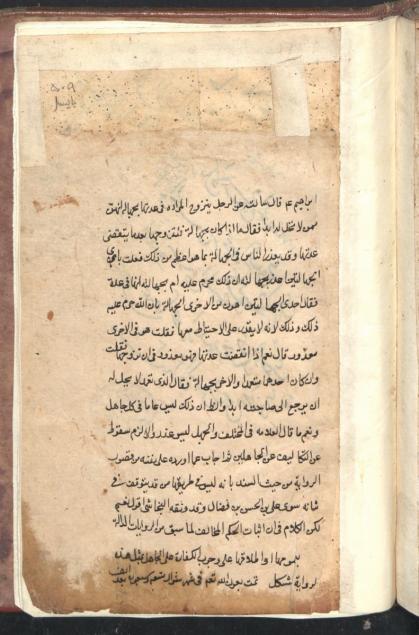 ابراهيم ع قال سالته عن الرجل يتزوج المراة في عدتها بجهالة اهي
ممن لا تحل له ابدا فقال لا اما اذا كان بجهالة فليتزوجها بعد ما ينقضي
عدتها وقد يعذر الناس في الجهالة بما هو اعظم من ذلك فقلت باي
الجهالتين اعذر بجهالته ان ذلك محرم عليه ام بجهالته انها في عدة
فقال احدى الجهالتين اهون من الاخرى الجهالة بان الله حرم عليه
ذلك وذلك لانه لا يقدر على الاحتياط معها فقلت هو في الاخرى
معذور قال نعم اذا انقضت عدتها فهو معذور في ان يتزوجها فقلت
وان كان احدهما متعمدا والاخر بجهالة فقال الذي تعمد لا يحل له
ان يرجع الى صاحبه ابدا والظاهر ان ذلك ليس عاما في كل جاهل
ونعم ما قال العلامة في المختلف والجهل ليس عذرا والا لزم سقوط
عن التكاليف عن الجاهلين
الرواية من حيث السند بانه ليس في طريقها من قد يتوقف في
شانه سوى علي بن الحسن بن فضال وقد وثقه النجاشي اقول نعم
لكن الكلام في ان اثبات الحكم المخالف لما سبق من الروايات الدالة
بعمومها او اطلاقها على وجوب الكفارة على الجاهل بمثل هذه
الرواية مشكل تمت بعون الله تعالى في شهر شوال